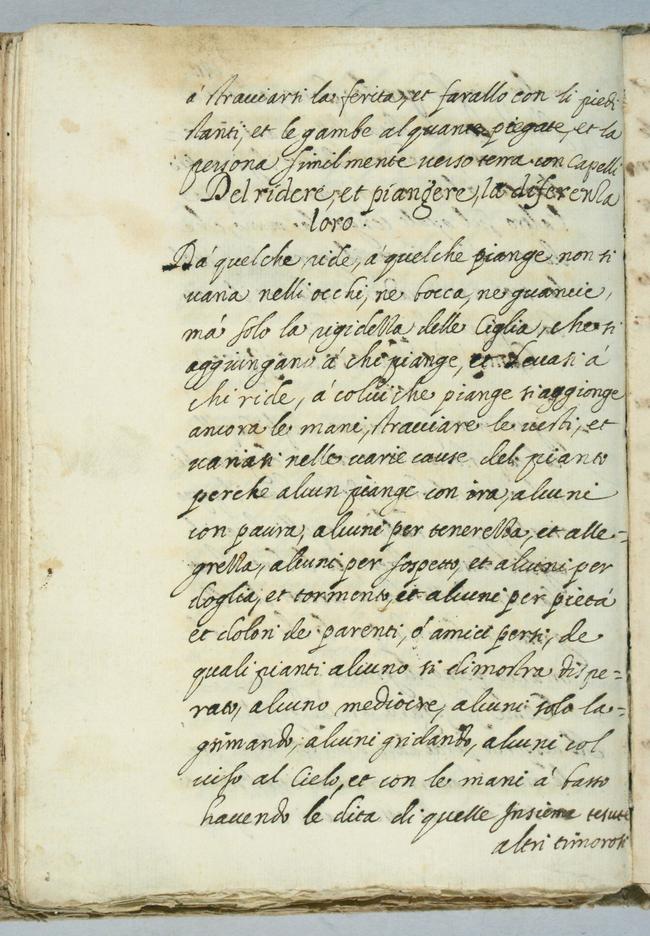 á stracciarsi la ferita, et farallo con li piedi
stanti, et le gambe alquante piegate, et la
persona similmente uerso terra con Capelli
Del ridere, et piangere, la diferenza
loro.
Da' quelche ride, a' quelche piange non si
uaria nelli occhi, ne bocca, ne guancie,
má solo la rigidezza delle Ciglia, che si
aggiungano á chi piange, et leuasi á
chi ride, á colui che piange si aggionge
ancora le mani, stracciare le uesti, et
uariasi nelle uarie cause del pianto
perche alcun piange con ira, alcuni
con paura, alcuni per tenerezza, et alle=
grezza, alcuni per sospetto, et alcuni per
doglia, et tormento, et alcuni per pietá
et dolori de parenti, ó amici persi, de
quali pianti alcuno si dimostra dispe=
rato, alcuno mediocre, alcuni solo la=
grimando, alcuni gridando, alcuni col
uiso al Cielo, et con le mani á basso
hauendo le dita di quelle Insieme tesute
altri timorosi